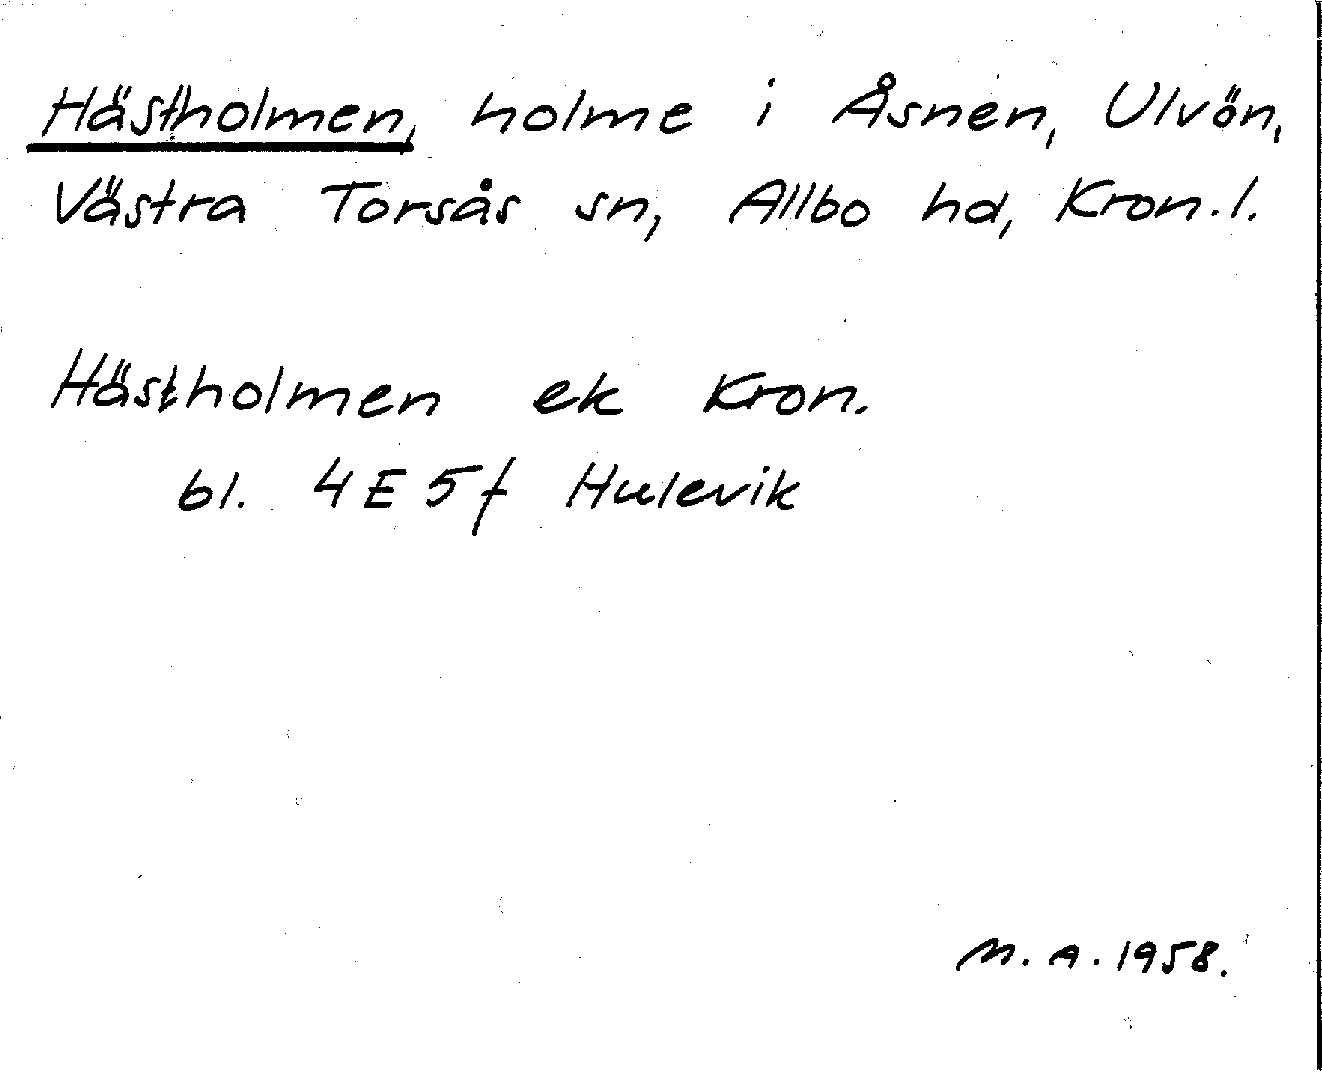 Hästholmen, holme i Åsnen, Ulvön,
Västra Torsås sn, Allbo hd, Kron.l.
Hästholmen ek Kron.
bl. 4E5f Hulevik
M.A. 1958.